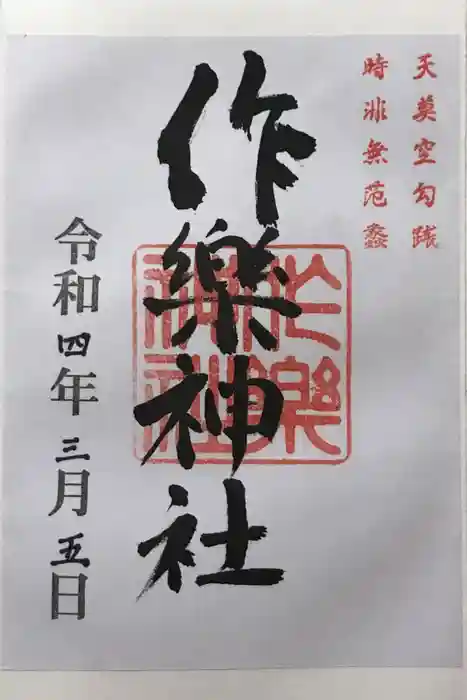 天莫空勾踐
時非無范蠡
作樂神社
作樂神社
令和四年三月五日